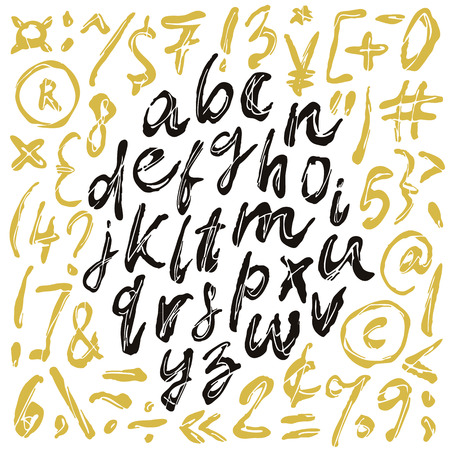 ¤ : ^ / $ 7 ! 3 * ¥ [ + 0
® 8 a b c n " | #
× { d e f g h o i 5 } >
( 4 ? j k l t m u @ )
! 7 & q r s p x v ©
y z w <
6 \ ~ ÷ « 2 = ¢ % 9 ;